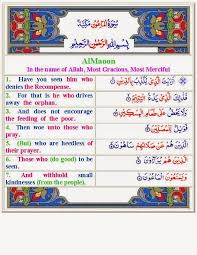 سُورَةُ الْمَاعُونِ مَكِّيَّةٌ
بِسْمِ اللَّهِ الرَّحْمَٰنِ الرَّحِيمِ
AlMaoon
In the name of Allah, Most Gracious, Most Merciful
1. Have you seen him who
denies the Recompense.
أَرَءَيْتَ الَّذِي يُكَذِّبُ بِالدِّينِ
2. For that is he who drives
away the orphan.
فَذَٰلِكَ الَّذِي يَدُعُّ الْيَتِيمَ
3. And does not encourage
the feeding of the poor.
وَلَا يَحُضُّ عَلَىٰ طَعَامِ الْمِسْكِينِ
4. Then woe unto those who
pray.
فَوَيْلٌ لِّلْمُصَلِّينَ
5. (But) who are heedless of
their prayer.
الَّذِينَ هُمْ عَن صَلَاتِهِمْ سَاهُونَ
6. Those who (do good) to be
seen.
الَّذِينَ هُمْ يُرَاءُونَ
7. And withhold small
kindnesses (from the people).
وَيَمْنَعُونَ الْمَاعُونَ